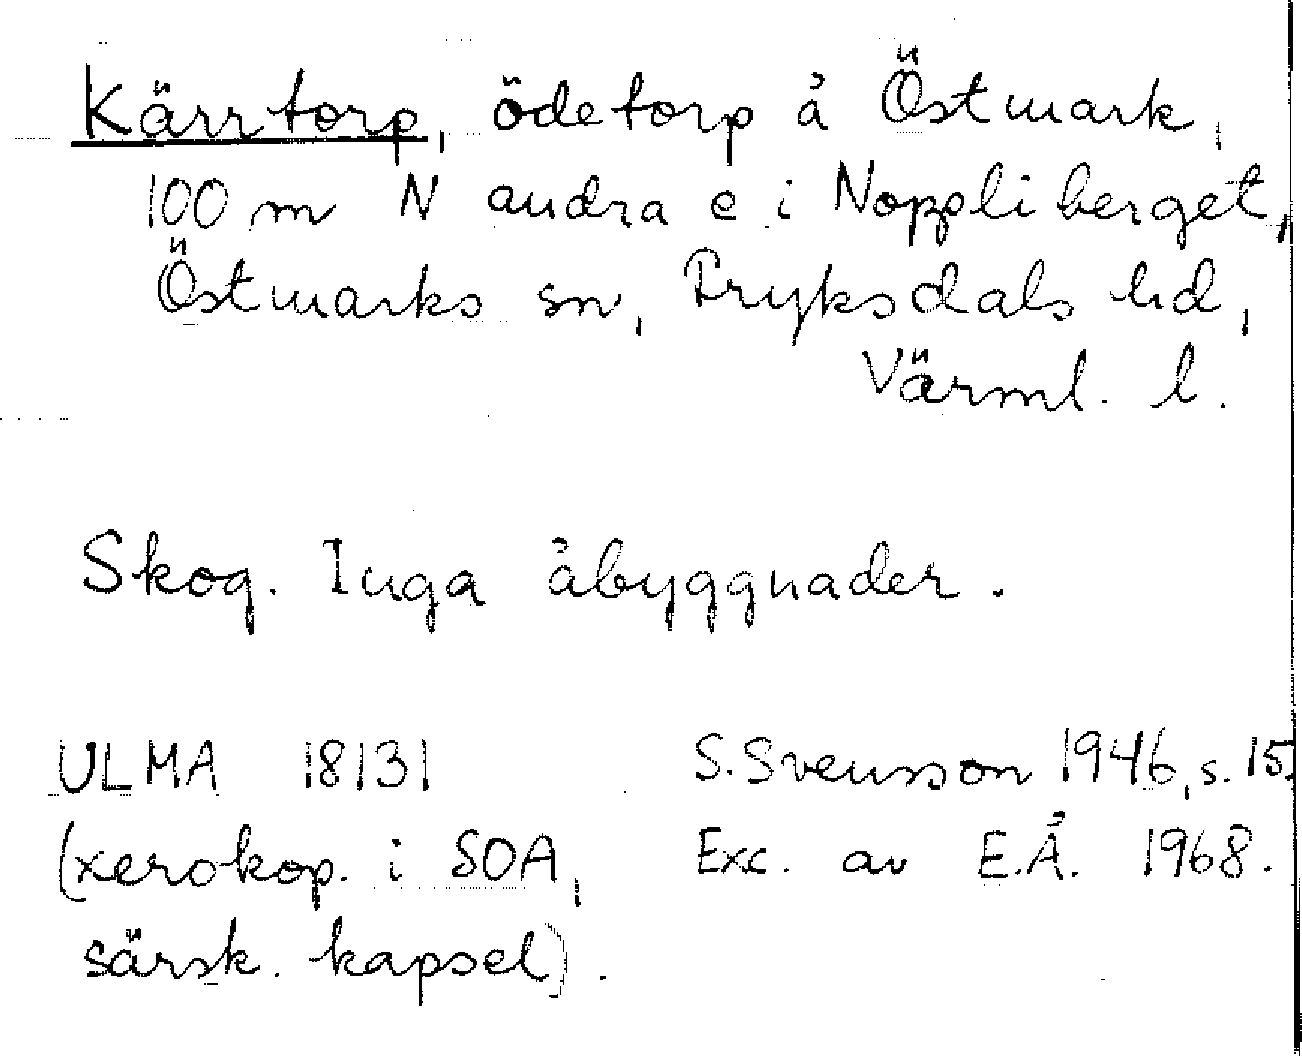 Kärrtorp, ödetorp å Östmark,
100 m N andra e i Noppliberget,
Östmarks sn, Fryksdals hd,
Värml. l.
Skog. Inga åbyggnader.
ULMA 18131
(xerokop. i SOA,
särsk. kapsel).
S. Svensson 1946, s. 15.
Exc. av E.Å. 1968.